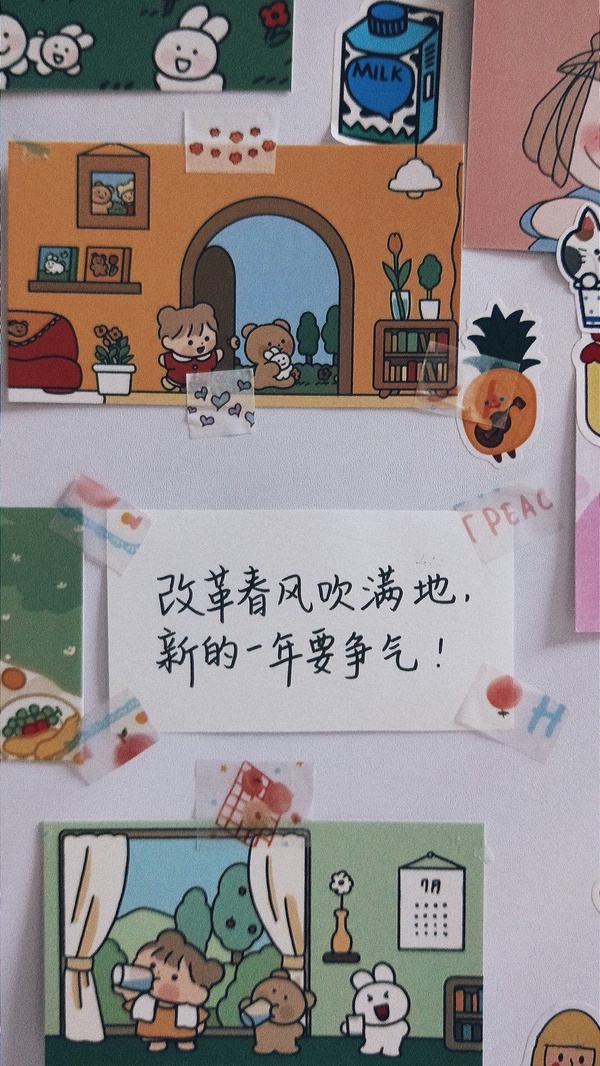 MILK
ГPEAC
改革春风吹满地，
新的一年要争气！
H
7月